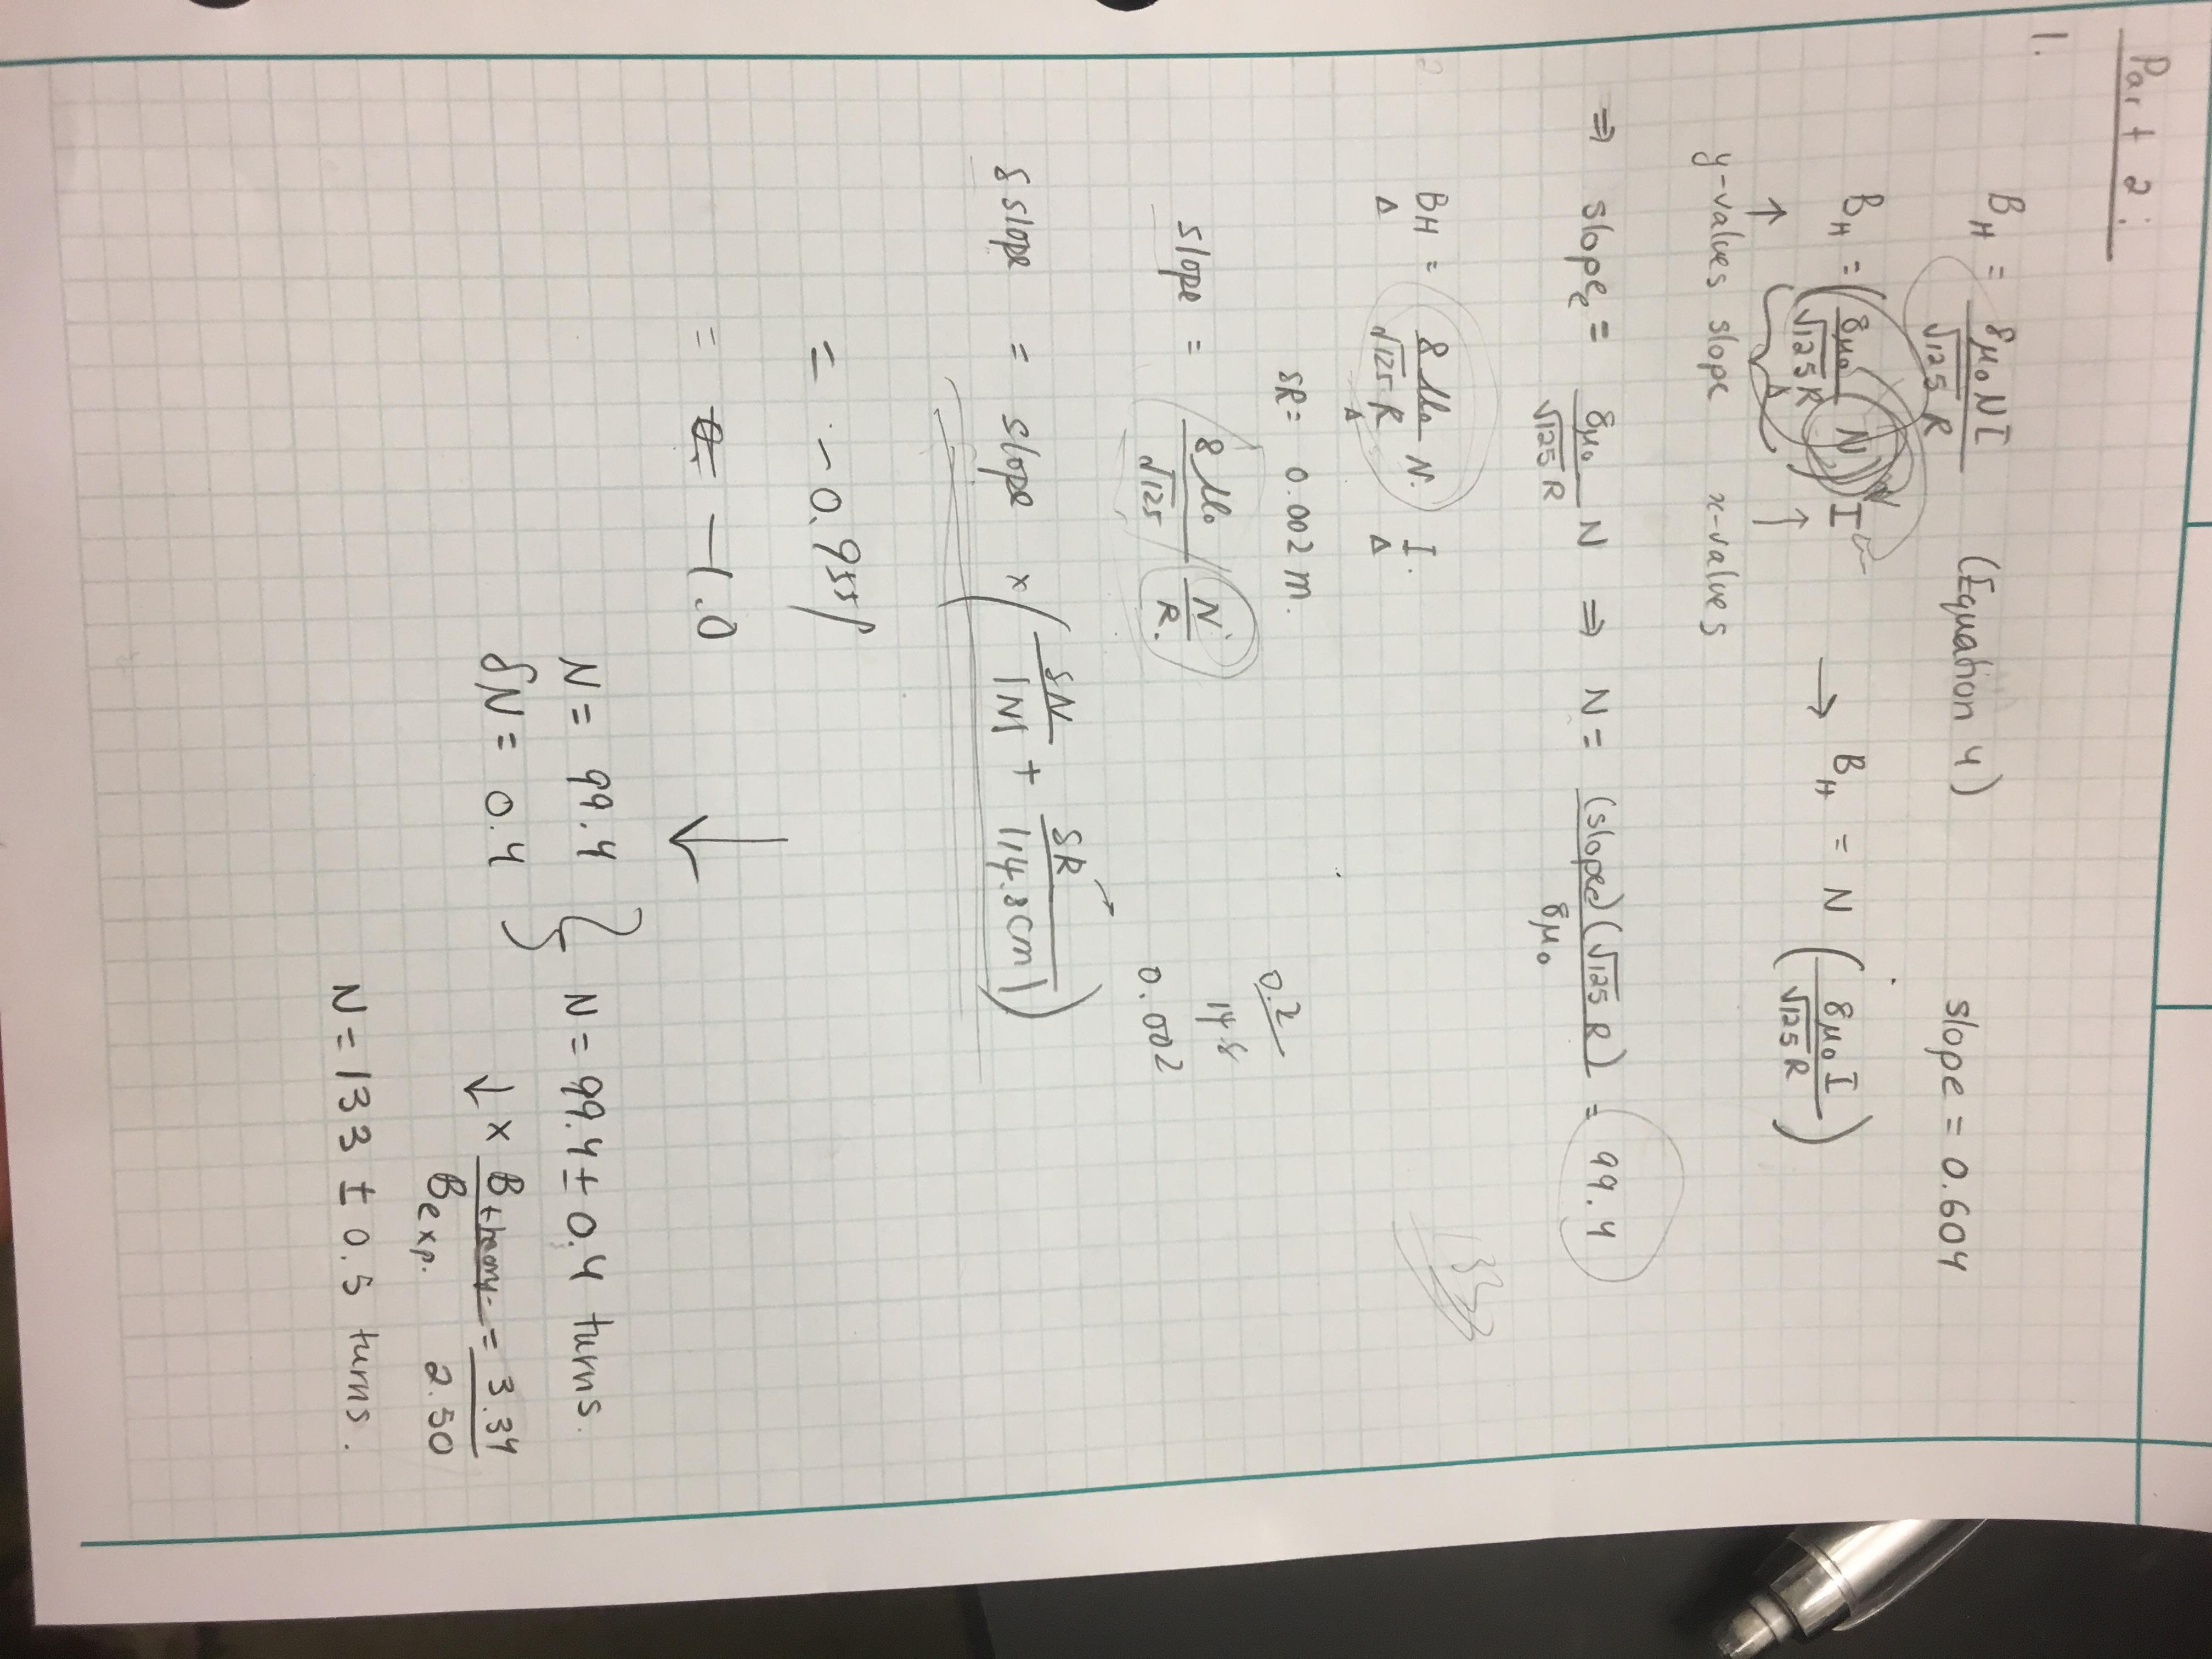 Part 2:
1.
B_H = 8μ₀NI / √125 R (Equation 4) slope = 0.604
B_H = (8μ₀ / √125 R N) I → B_H = N (8μ₀I / √125 R)
↑ ↑
y-values slope x-values
⇒ slope = 8μ₀ / √125 R N ⇒ N = (slope)(√125 R) / 8μ₀ = 99.4
133
BH = 8μ₀ / √125 R N. I.
Δ Δ Δ
δR = 0.002 m.
0.2
14.8
0.002
slope = 8μ₀ / √125 N / R.
δ slope = slope × (δN / |N| + δR / |14.8cm|)
= -0.955
= -1.0
↓
N = 99.4 } N = 99.4 ± 0.4 turns.
δN = 0.4
↓ × B theory / B exp. = 3.34 / 2.50
N = 133 ± 0.5 turns.